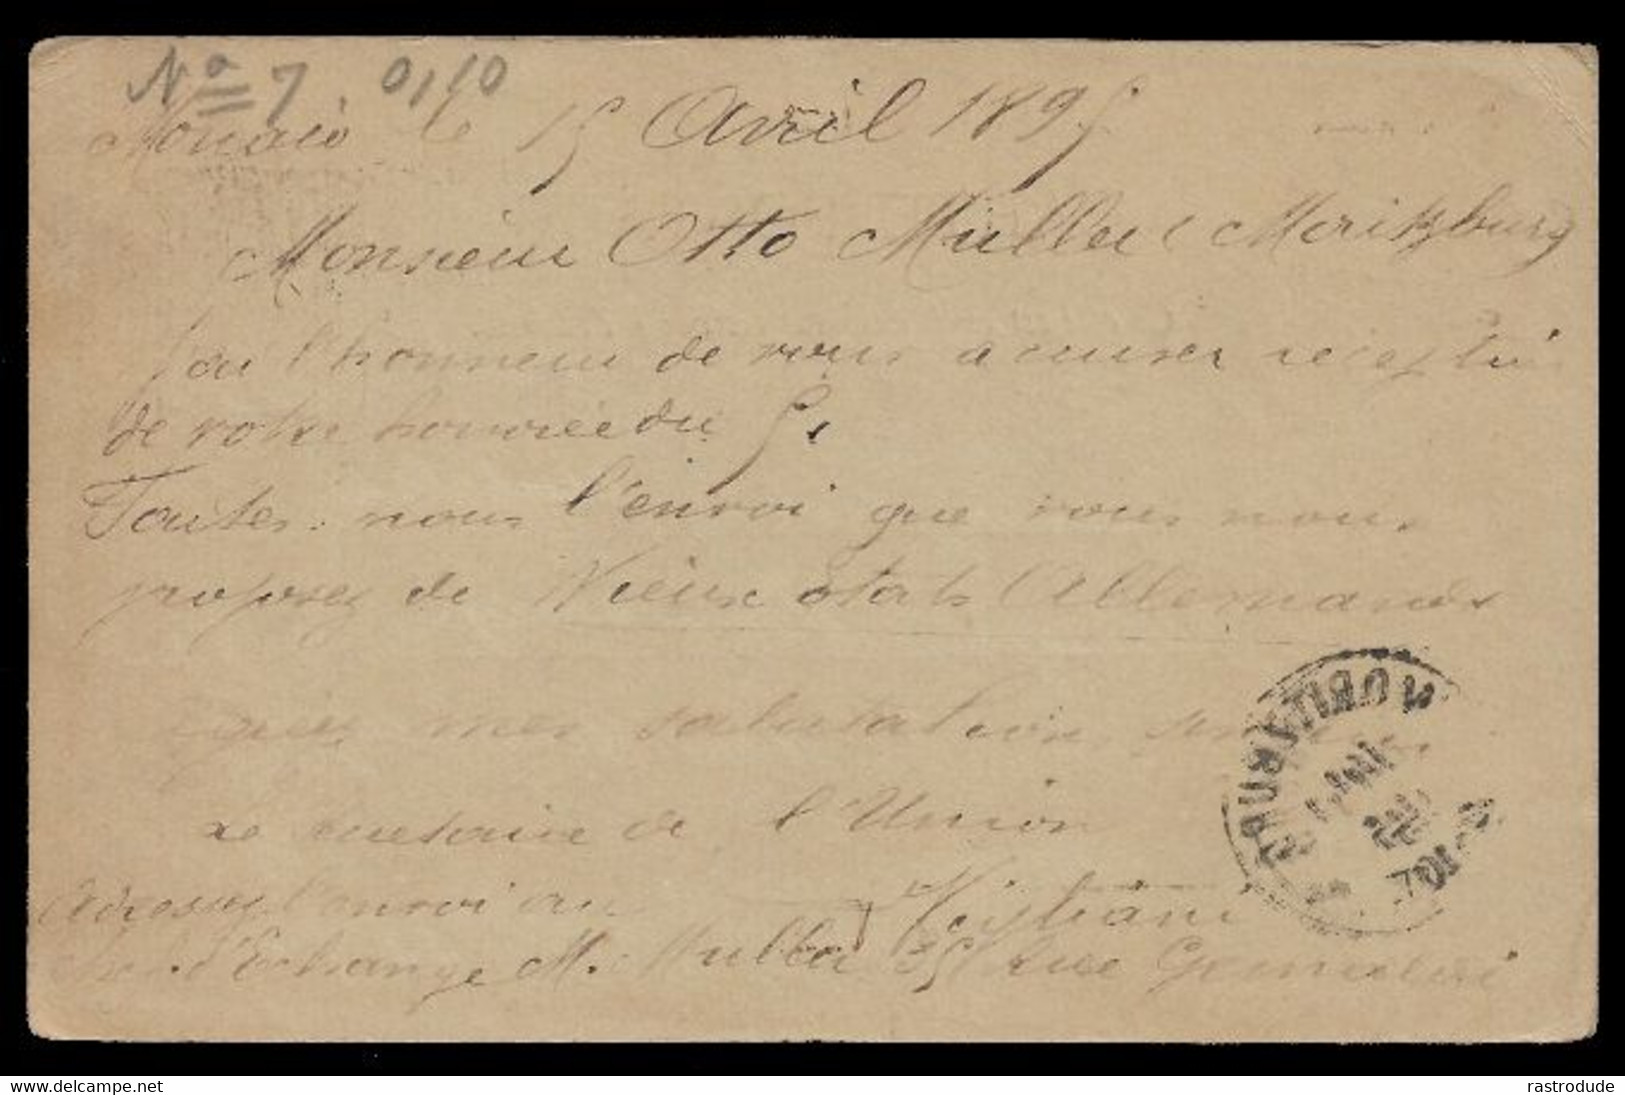 No 7 0,10
Monaco le 15 Avril 1895
Monsieur Otto Muller Moritzburg
J'ai l'honneur de vous accuser réceptio
de votre honorée du 5.
Faites nous l'envoi que vous nous
proposez de Vieux états Allemands
mes salutations
Le secretaire de l'Union
Adressez l'envoi au
d'Echange M. Muller rue
MORITZBURG
delcampe.net
rastrodude